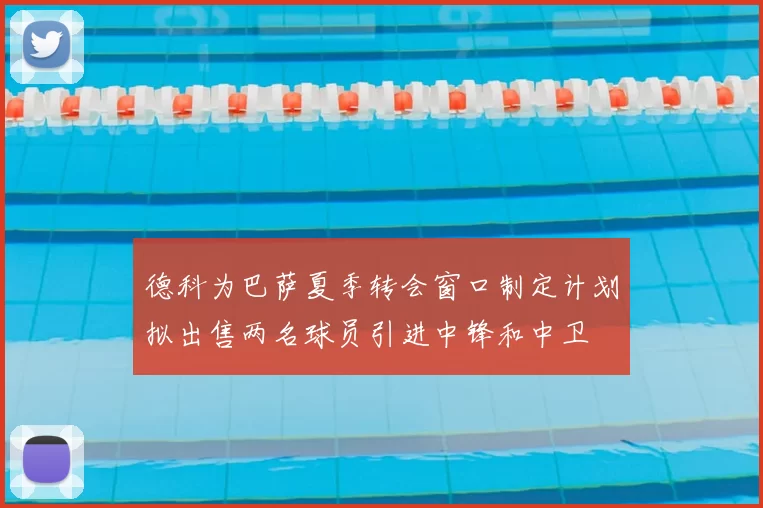 德科为巴萨夏季转会窗口制定计划
拟出售两名球员引进中锋和中卫